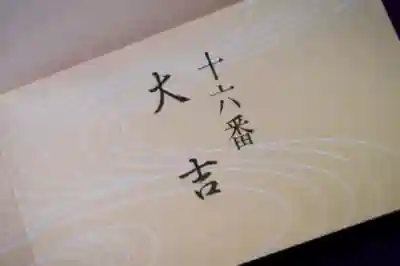 十六番
大吉